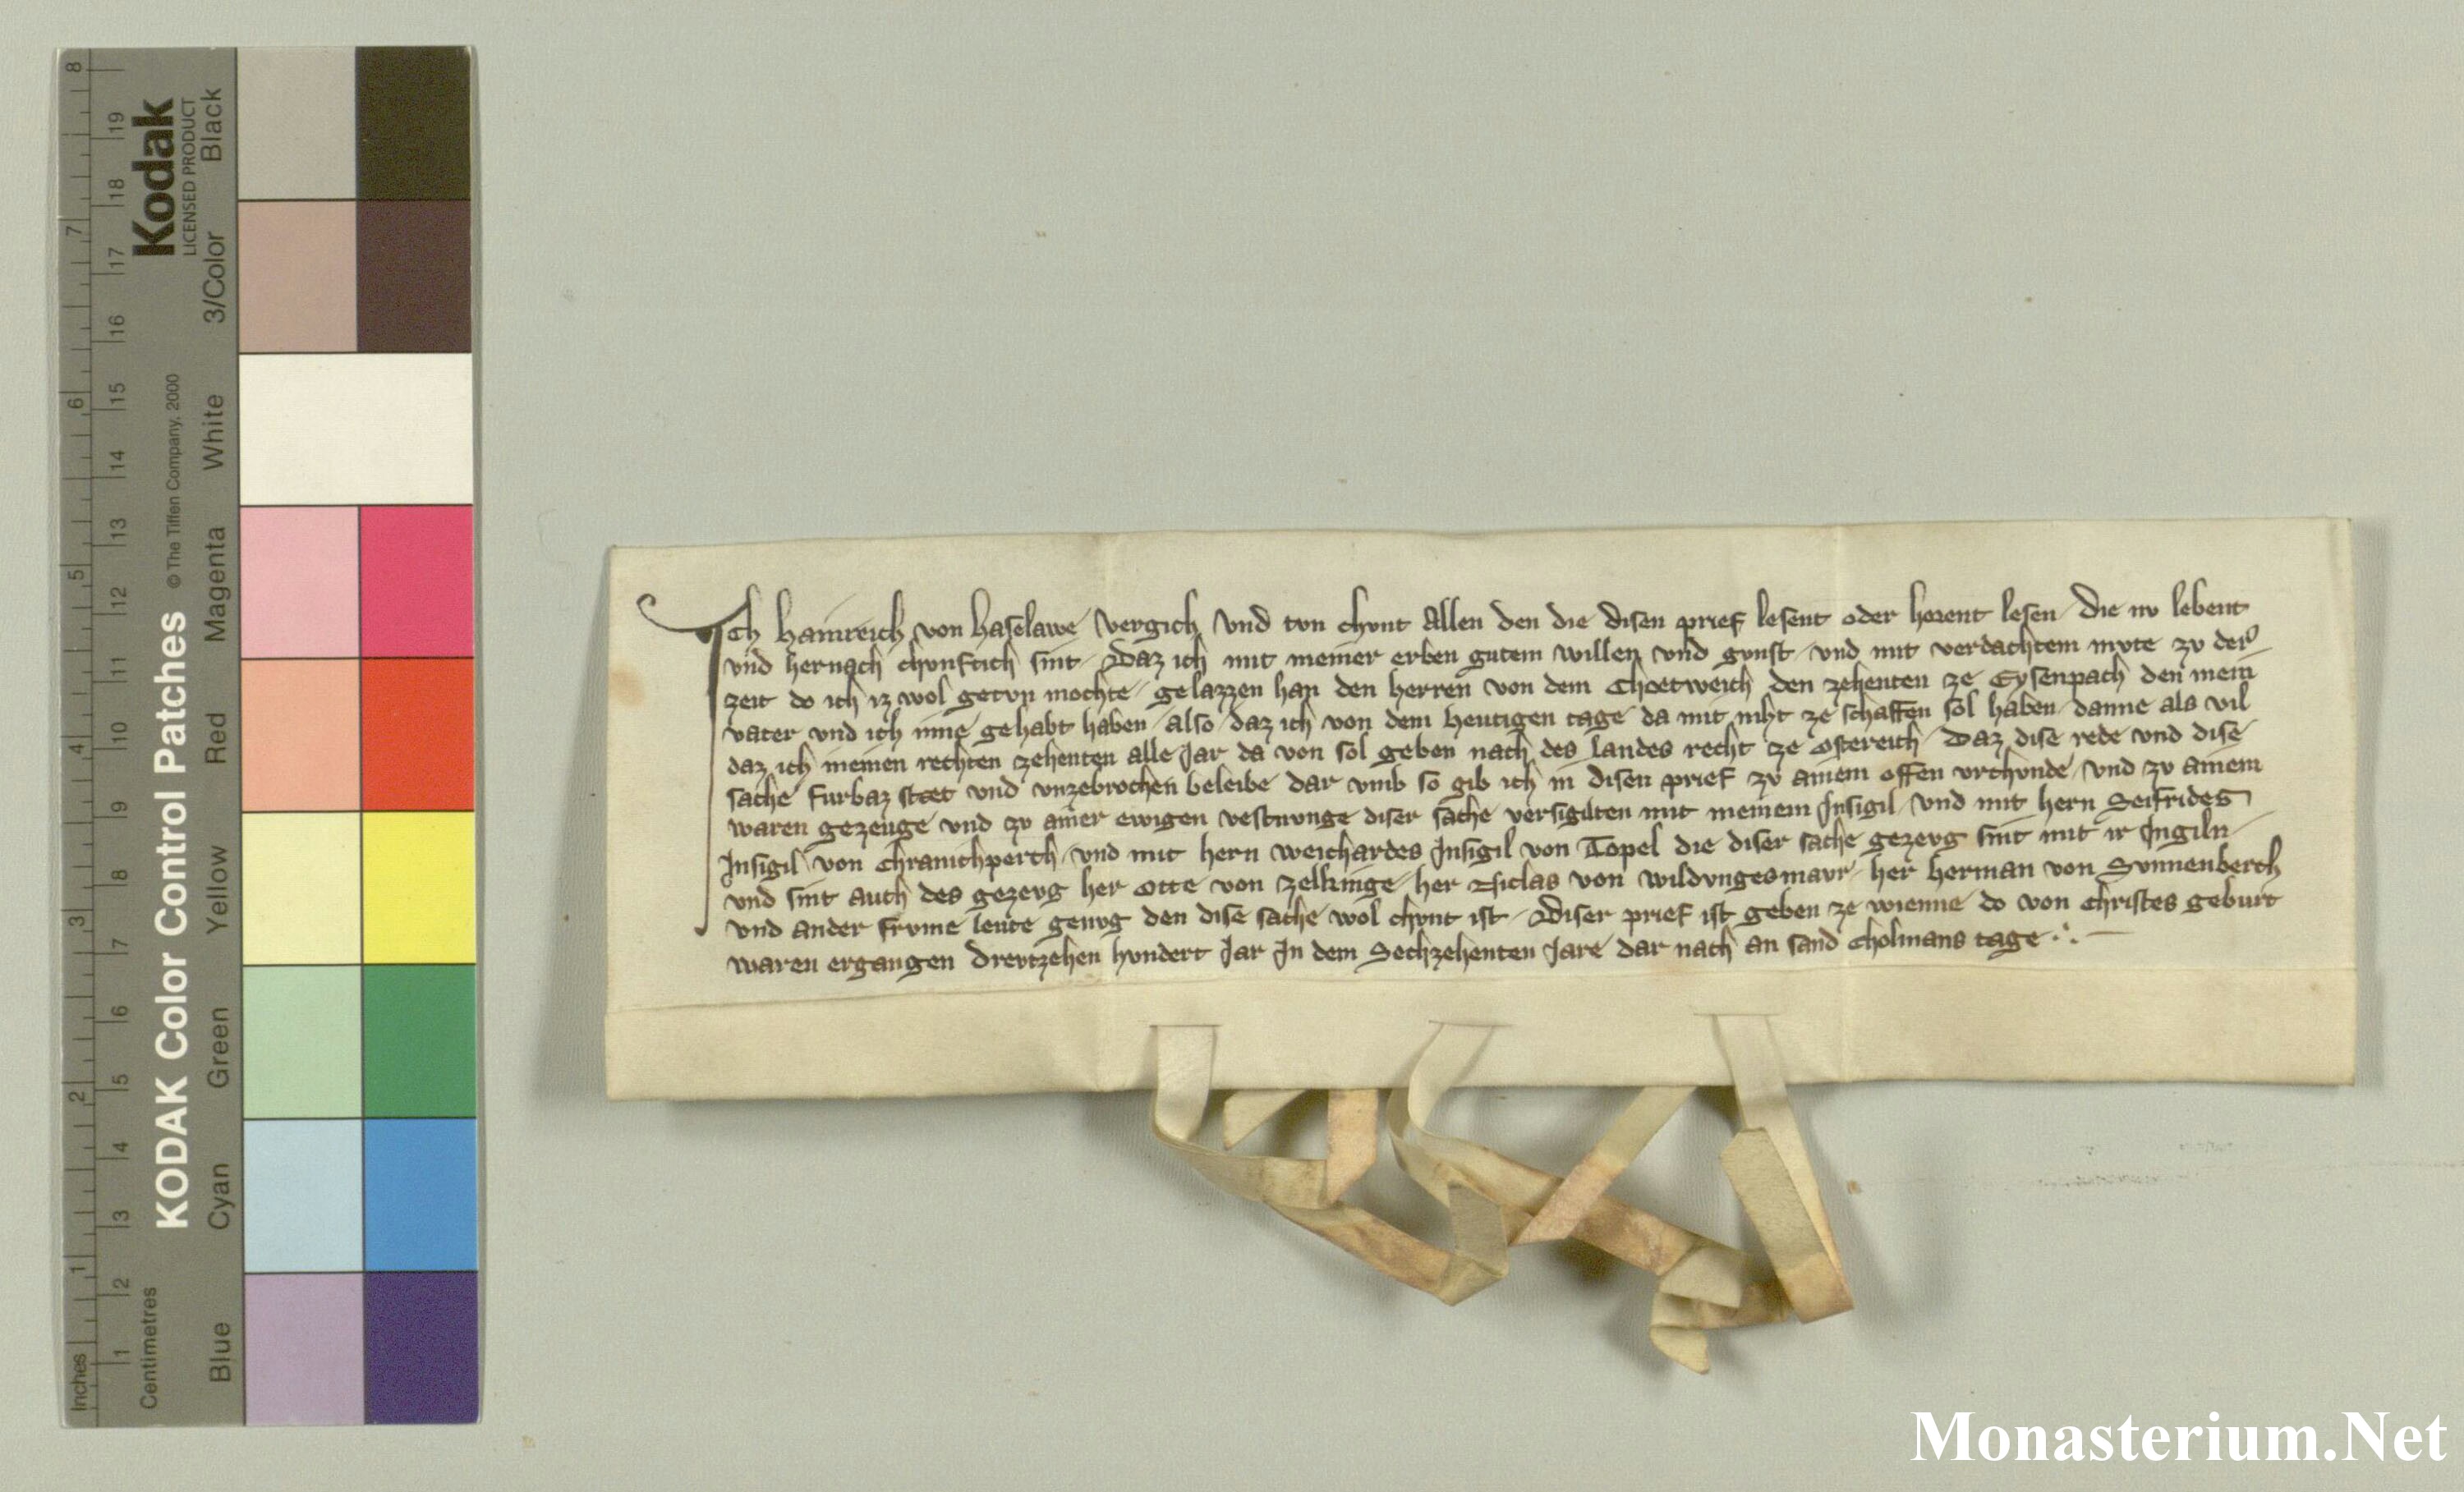 Ich Hainreich von Haselawe vergich vnd tvn chvnt Allen den die disen prief lesent oder horent lesen die nv lebent
vnd hernach chvnftich sint Daz ich mit meiner erben gutem willen vnd gvnst vnd mit verdachtem mvte zv der
zeit do ich iz wol getvn mochte gelazzen han den herren von dem Choetweich den zehenten ze Eysenpach den mein
vater vnd ich inne gehabt haben also daz ich von dem heutigen tage da mit niht ze schaffen sol haben danne als vil
daz ich meinen rechten zehenten alle Jar da von sol geben nach des landes recht ze Ostereich Daz dise rede vnd dise
sache furbaz stæt vnd vnzebrochen beleibe dar vmb so gib ich in disen prief zv ainem offen vrchvnde vnd zv ainem
waren gezeuge vnd zv ainer ewigen vestnvnge diser sache versigilten mit meinem Insigil vnd mit hern Seifrides
Insigil von Chranichperch vnd mit hern weichardes Insigil von Topel die diser sache gezevg sint mit ir Ingiln
vnd sint auch des gezevg her Otte von Zelkinge her Niclas von wildvngesmavr her herman von Svnnenberch
vnd ander frvme leute genvg den dise sache wol chvnt ist Diser prief ist geben ze wienne do von Christes geburt
waren ergangen Drevtzehen hvndert Jar In dem Sechzehenten Jare dar nach an sand Cholmans tage
KODAK Color Control Patches
© The Tiffen Company, 2000
Kodak
LICENSED PRODUCT
Inches
1 2 3 4 5 6 7 8
Centimetres
1 2 3 4 5 6 7 8 9 10 11 12 13 14 15 16 17 18 19
Blue Cyan Green Yellow Red Magenta White 3/Color Black
Monasterium.Net